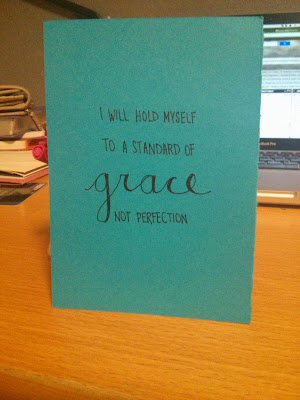 I WILL HOLD MYSELF
TO A STANDARD OF
grace
NOT PERFECTION
MacBook Pro